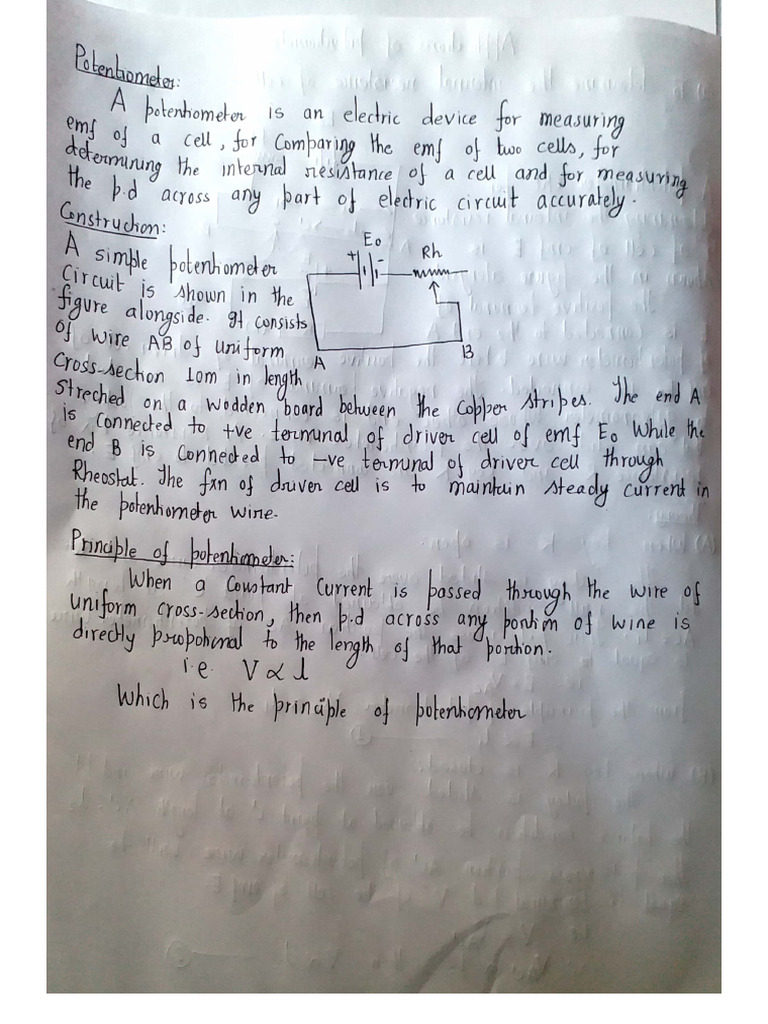 Potentiometer:
A potentiometer is an electric device for measuring
emf of a cell, for comparing the emf of two cells, for
determining the internal resistance of a cell and for measuring
the p.d across any part of electric circuit accurately.
Construction:
A simple potentiometer
circuit is shown in the
figure alongside. It consists
of wire AB of uniform
cross-section 10m in length
E₀
+ -
Rh
A
B
streched on a wodden board between the copper stripes. The end A
is connected to +ve terminal of driver cell of emf E₀ while the
end B is connected to -ve terminal of driver cell through
Rheostat. The fxn of driver cell is to maintain steady current in
the potentiometer wire.
Principle of potentiometer:
When a constant current is passed through the wire of
uniform cross-section, then p.d across any portion of wire is
directly propotional to the length of that portion.
i.e. V ∝ l
Which is the principle of potentiometer